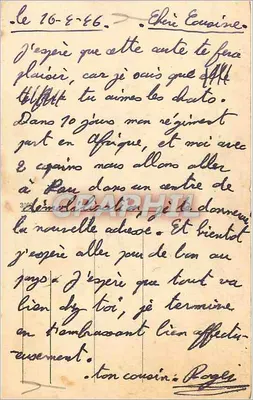 le 16-5-46. Chère Cousine.
J'espère que cette carte te fera
plaisir, car je sais que
tu aimes les chats.
Dans 10 jours mon régiment
part en Afrique, et moi avec
2 copains nous allons aller
à Pau dans un centre de
démobilisation, je te donnerai
la nouvelle adresse. Et bientot
j'espère aller pour de bon au
pays. J'espère que tout va
bien chez toi, je termine
en t'embrassant bien affectu-
eusement.
ton cousin. Roger
CRAPHIL